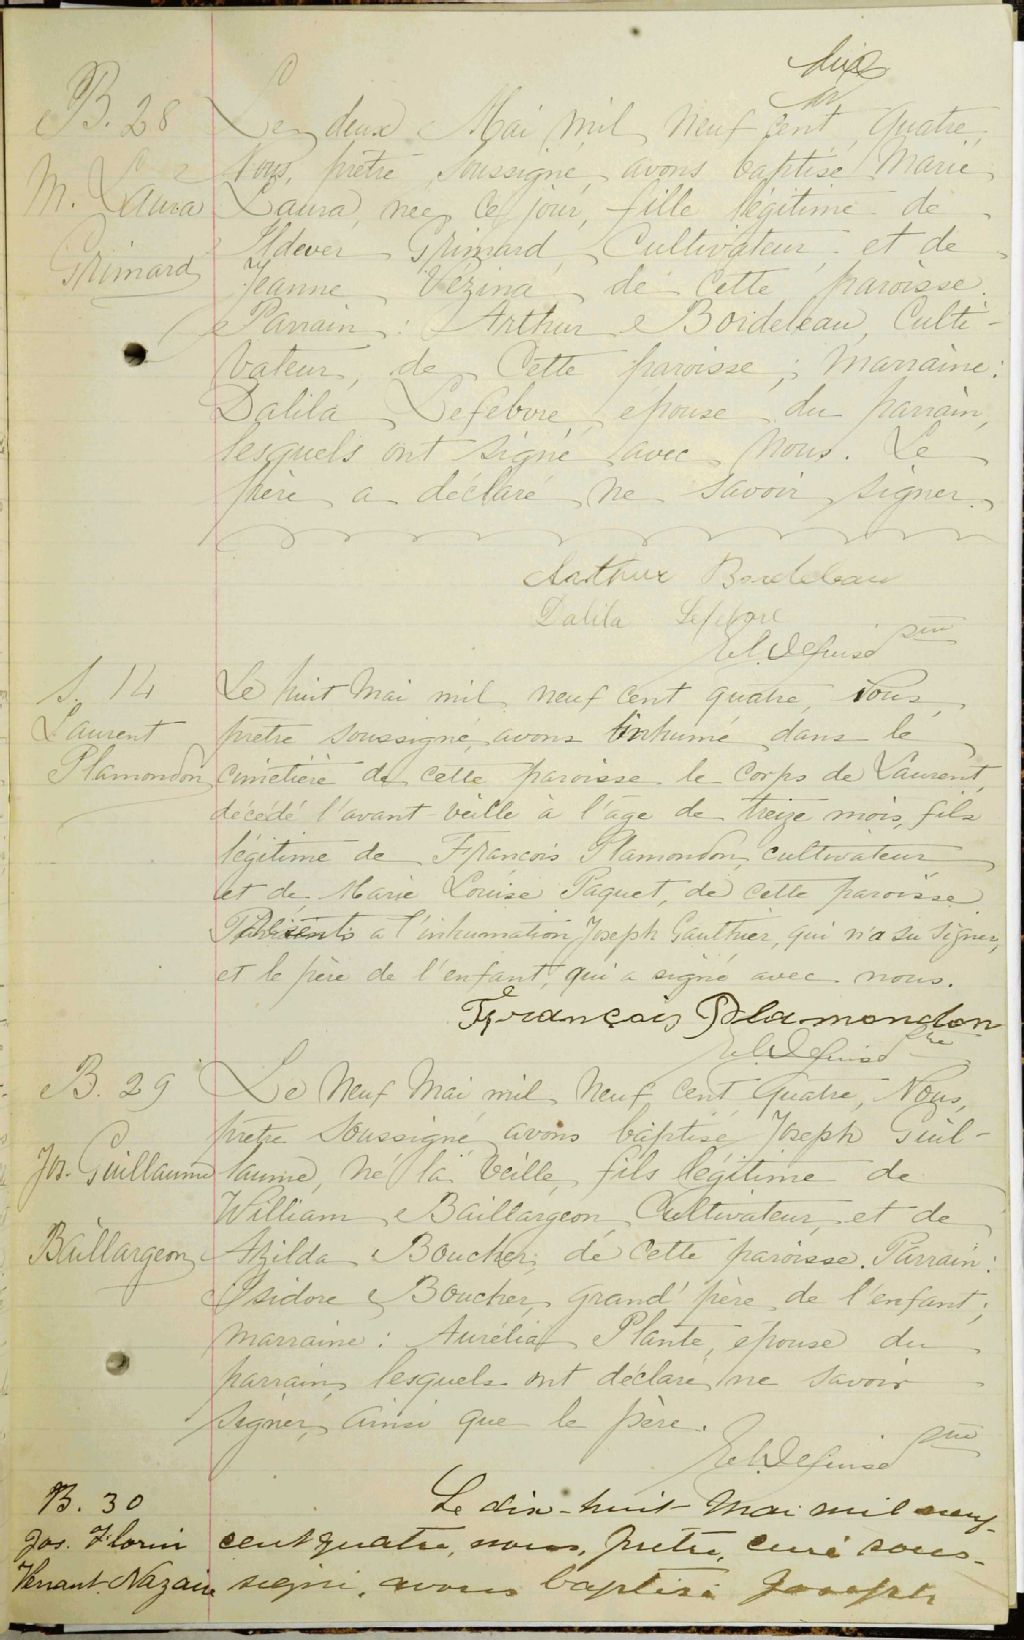 dix
B. 28
M. Laura
Grimard
Le deux Mai mil neuf cent quatre,
Nous, prêtre soussigné, avons baptisé Marie
Laura, née ce jour, fille légitime de
Grimard, Cultivateur, et de
Jeanne Vézina de cette paroisse.
Parrain: Arthur Bordeleau, Culti-
vateur, de cette paroisse; marraine:
Dalila Lefebvre, épouse du parrain,
lesquels ont signé avec nous. Le
père a déclaré ne savoir signer.
Arthur Bordeleau
Dalila Lefebvre
ptre
S. 14
Laurent
Plamondon
Le huit Mai mil neuf cent quatre, Nous,
prêtre soussigné, avons inhumé dans le
cimetière de cette paroisse le corps de Laurent,
décédé l'avant-veille à l'âge de treize mois, fils
légitime de François Plamondon, cultivateur
et de Marie Louise Paquet, de cette paroisse.
Présents à l'inhumation Joseph Gauthier, qui n'a su signer,
et le père de l'enfant, qui a signé avec nous.
François Plamondon
ptre
B. 29
Jos. Guillaume
Baillargeon
Le Neuf Mai mil neuf cent quatre, Nous,
prêtre soussigné, avons baptisé Joseph Guil-
laume, né la veille, fils légitime de
William Baillargeon, Cultivateur, et de
Azilda Boucher, de cette paroisse. Parrain:
Isidore Boucher, grand'père de l'enfant;
marraine: Aurélia Plante, épouse du
parrain, lesquels ont déclaré ne savoir
signer, ainsi que le père.
ptre
B. 30
Jos. Florin
Venant Nazaire
Le dix-huit Mai mil neuf
cent quatre, nous, prêtre, curé sous-
signé, avons baptisé Joseph